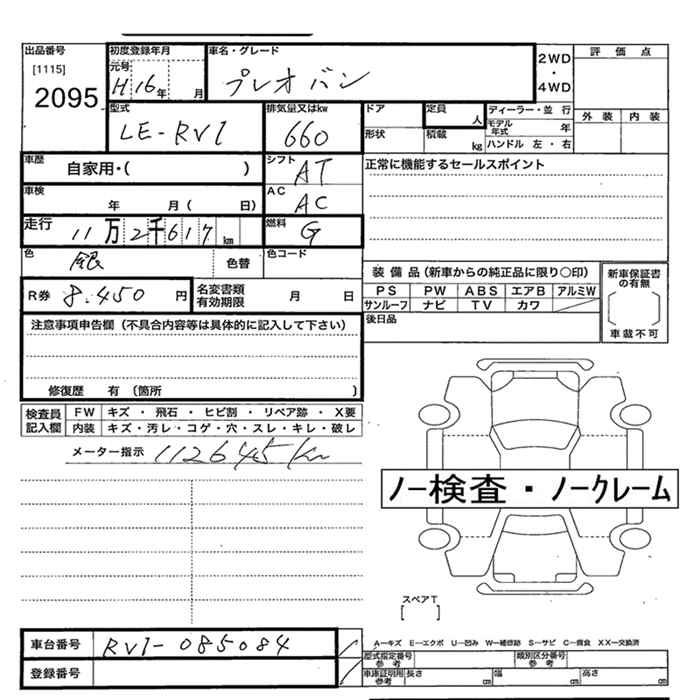 出品番号
[1115]
2095
初度登録年月
元号
H 16年 月
車名・グレード
プレオ バン
2WD
・
4WD
評価点
外装 内装
型式
LE-RV1
排気量又はkw
660
ドア
形状
定員
人
積載
kg
ディーラー・並行
モデル年式 年
ハンドル 左・右
車歴
自家用・( )
シフト
AT
正常に機能するセールスポイント
車検
年 月( 日)
AC
AC
走行
11万2千617km
燃料
G
色
銀
色替
色コード
R券 8.450円
名変書類有効期限 月 日
装備品(新車からの純正品に限り○印)
PS PW ABS エアB アルミW
サンルーフ ナビ TV カワ
後日品
新車保証書の有無
車載不可
注意事項申告欄(不具合内容等は具体的に記入して下さい)
修復歴 有(箇所 )
検査員記入欄
FW キズ・飛石・ヒビ割・リペア跡・X要
内装 キズ・汚レ・コゲ・穴・スレ・キレ・破レ
メーター指示 112645km
ノー検査・ノークレーム
スペアT
[ ]
車台番号 RV1-085084
登録番号
A-キズ E-エクボ U-凹み W-補修跡 S-サビ C-腐食 XX-交換済
型式指定番号参考
類別区分番号参考
車庫証明用参考 長さ cm 幅 cm 高さ cm